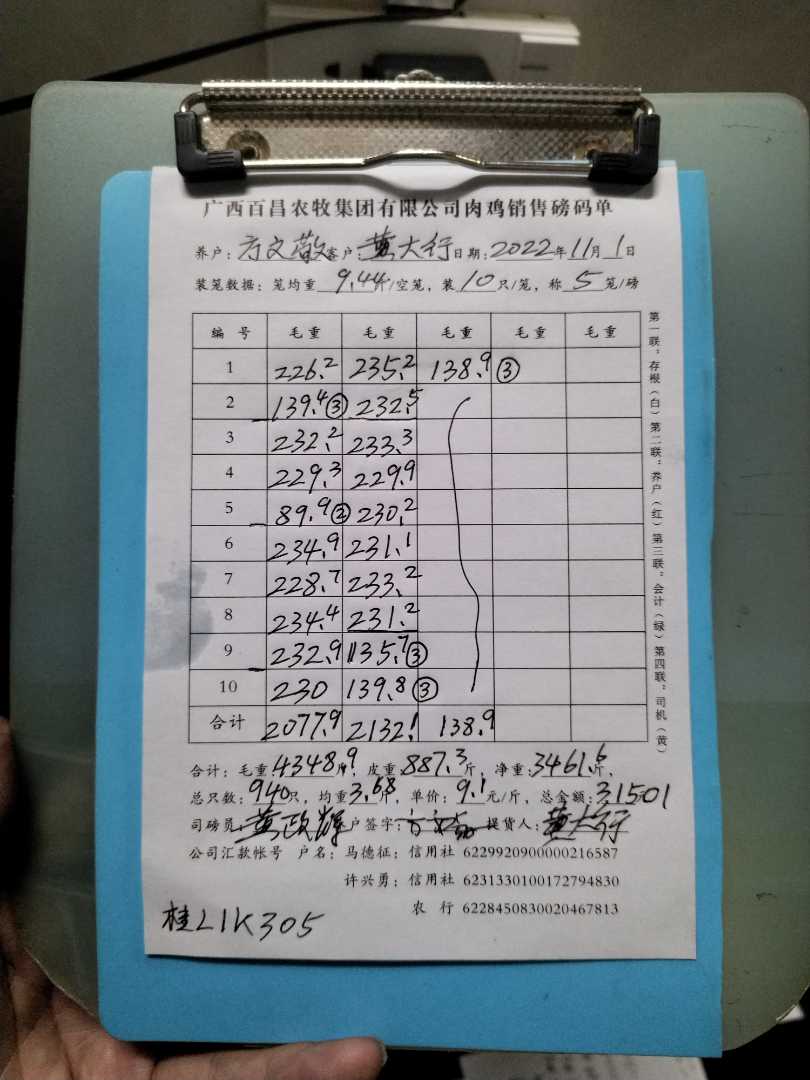 广西百昌农牧集团有限公司肉鸡销售磅码单
养户：方文敬 客户：黄大行 日期：2022年11月1日
装笼数据：笼均重 9.44斤/空笼，装 10 只/笼，称 5 笼/磅
编 号 毛重 毛重 毛重 毛重 毛重
1 226.2 235.2 138.9 ③
2 139.4 ③ 232.5
3 232.2 233.3
4 229.3 229.9
5 89.9 ② 230.2
6 234.9 231.1
7 228.7 233.2
8 234.4 231.2
9 232.9 135.7 ③
10 230 139.8 ③
合计 2077.9 2132.1 138.9
合计：毛重：4348.9斤，皮重：887.3斤，净重：3461.6斤，
总只数：940只，均重3.68斤，单价：9.1元/斤，总金额：31501
司磅员：黄政辉 户签字： 提货人：黄大行
公司汇款帐号 户名：马德征：信用社 6229920900000216587
许兴勇：信用社 6231330100172794830
农 行 6228450830020467813
桂L1K305
第一联：存根（白）第二联：养户（红）第三联：会计（绿）第四联：司机（黄）